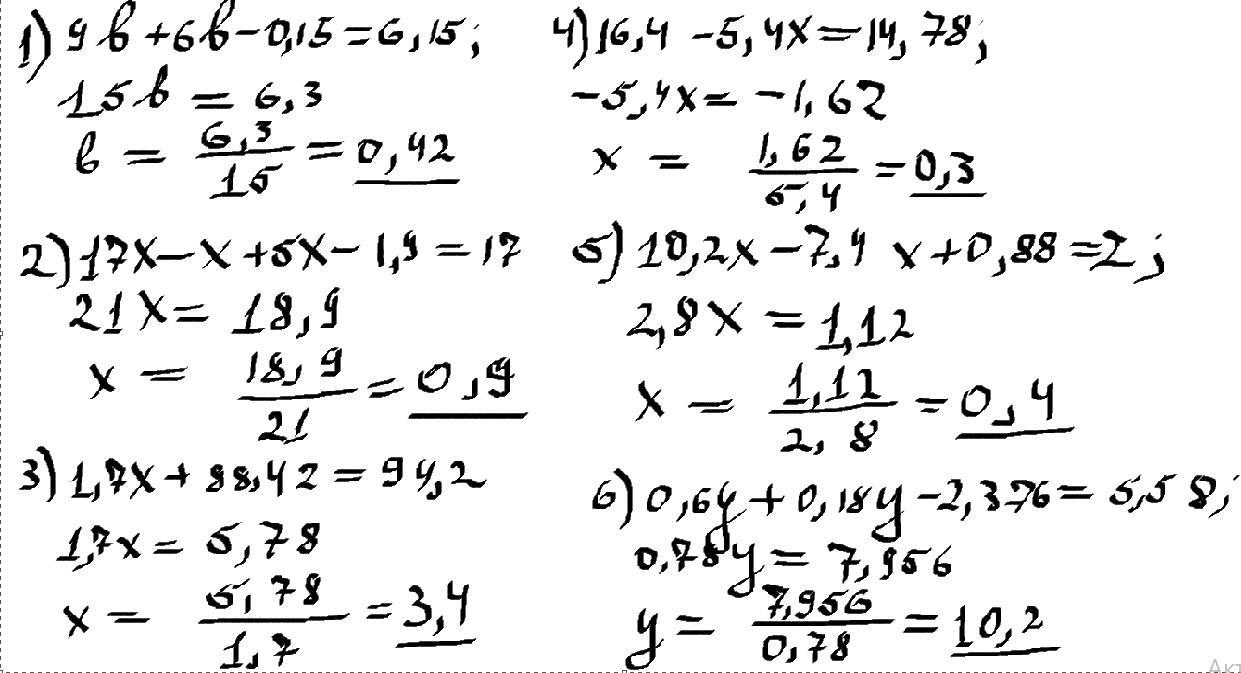 1) 9b + 6b - 0,15 = 6,15;
15b = 6,3
b = 6,3/15 = 0,42
2) 17x - x + 5x - 1,9 = 17
21x = 18,9
x = 18,9/21 = 0,9
3) 1,7x + 88,42 = 94,2
1,7x = 5,78
x = 5,78/1,7 = 3,4
4) 16,4 - 5,4x = 14,78;
-5,4x = -1,62
x = 1,62/5,4 = 0,3
5) 10,2x - 7,4x + 0,88 = 2;
2,8x = 1,12
x = 1,12/2,8 = 0,4
6) 0,6y + 0,18y - 2,376 = 5,58;
0,78y = 7,956
y = 7,956/0,78 = 10,2